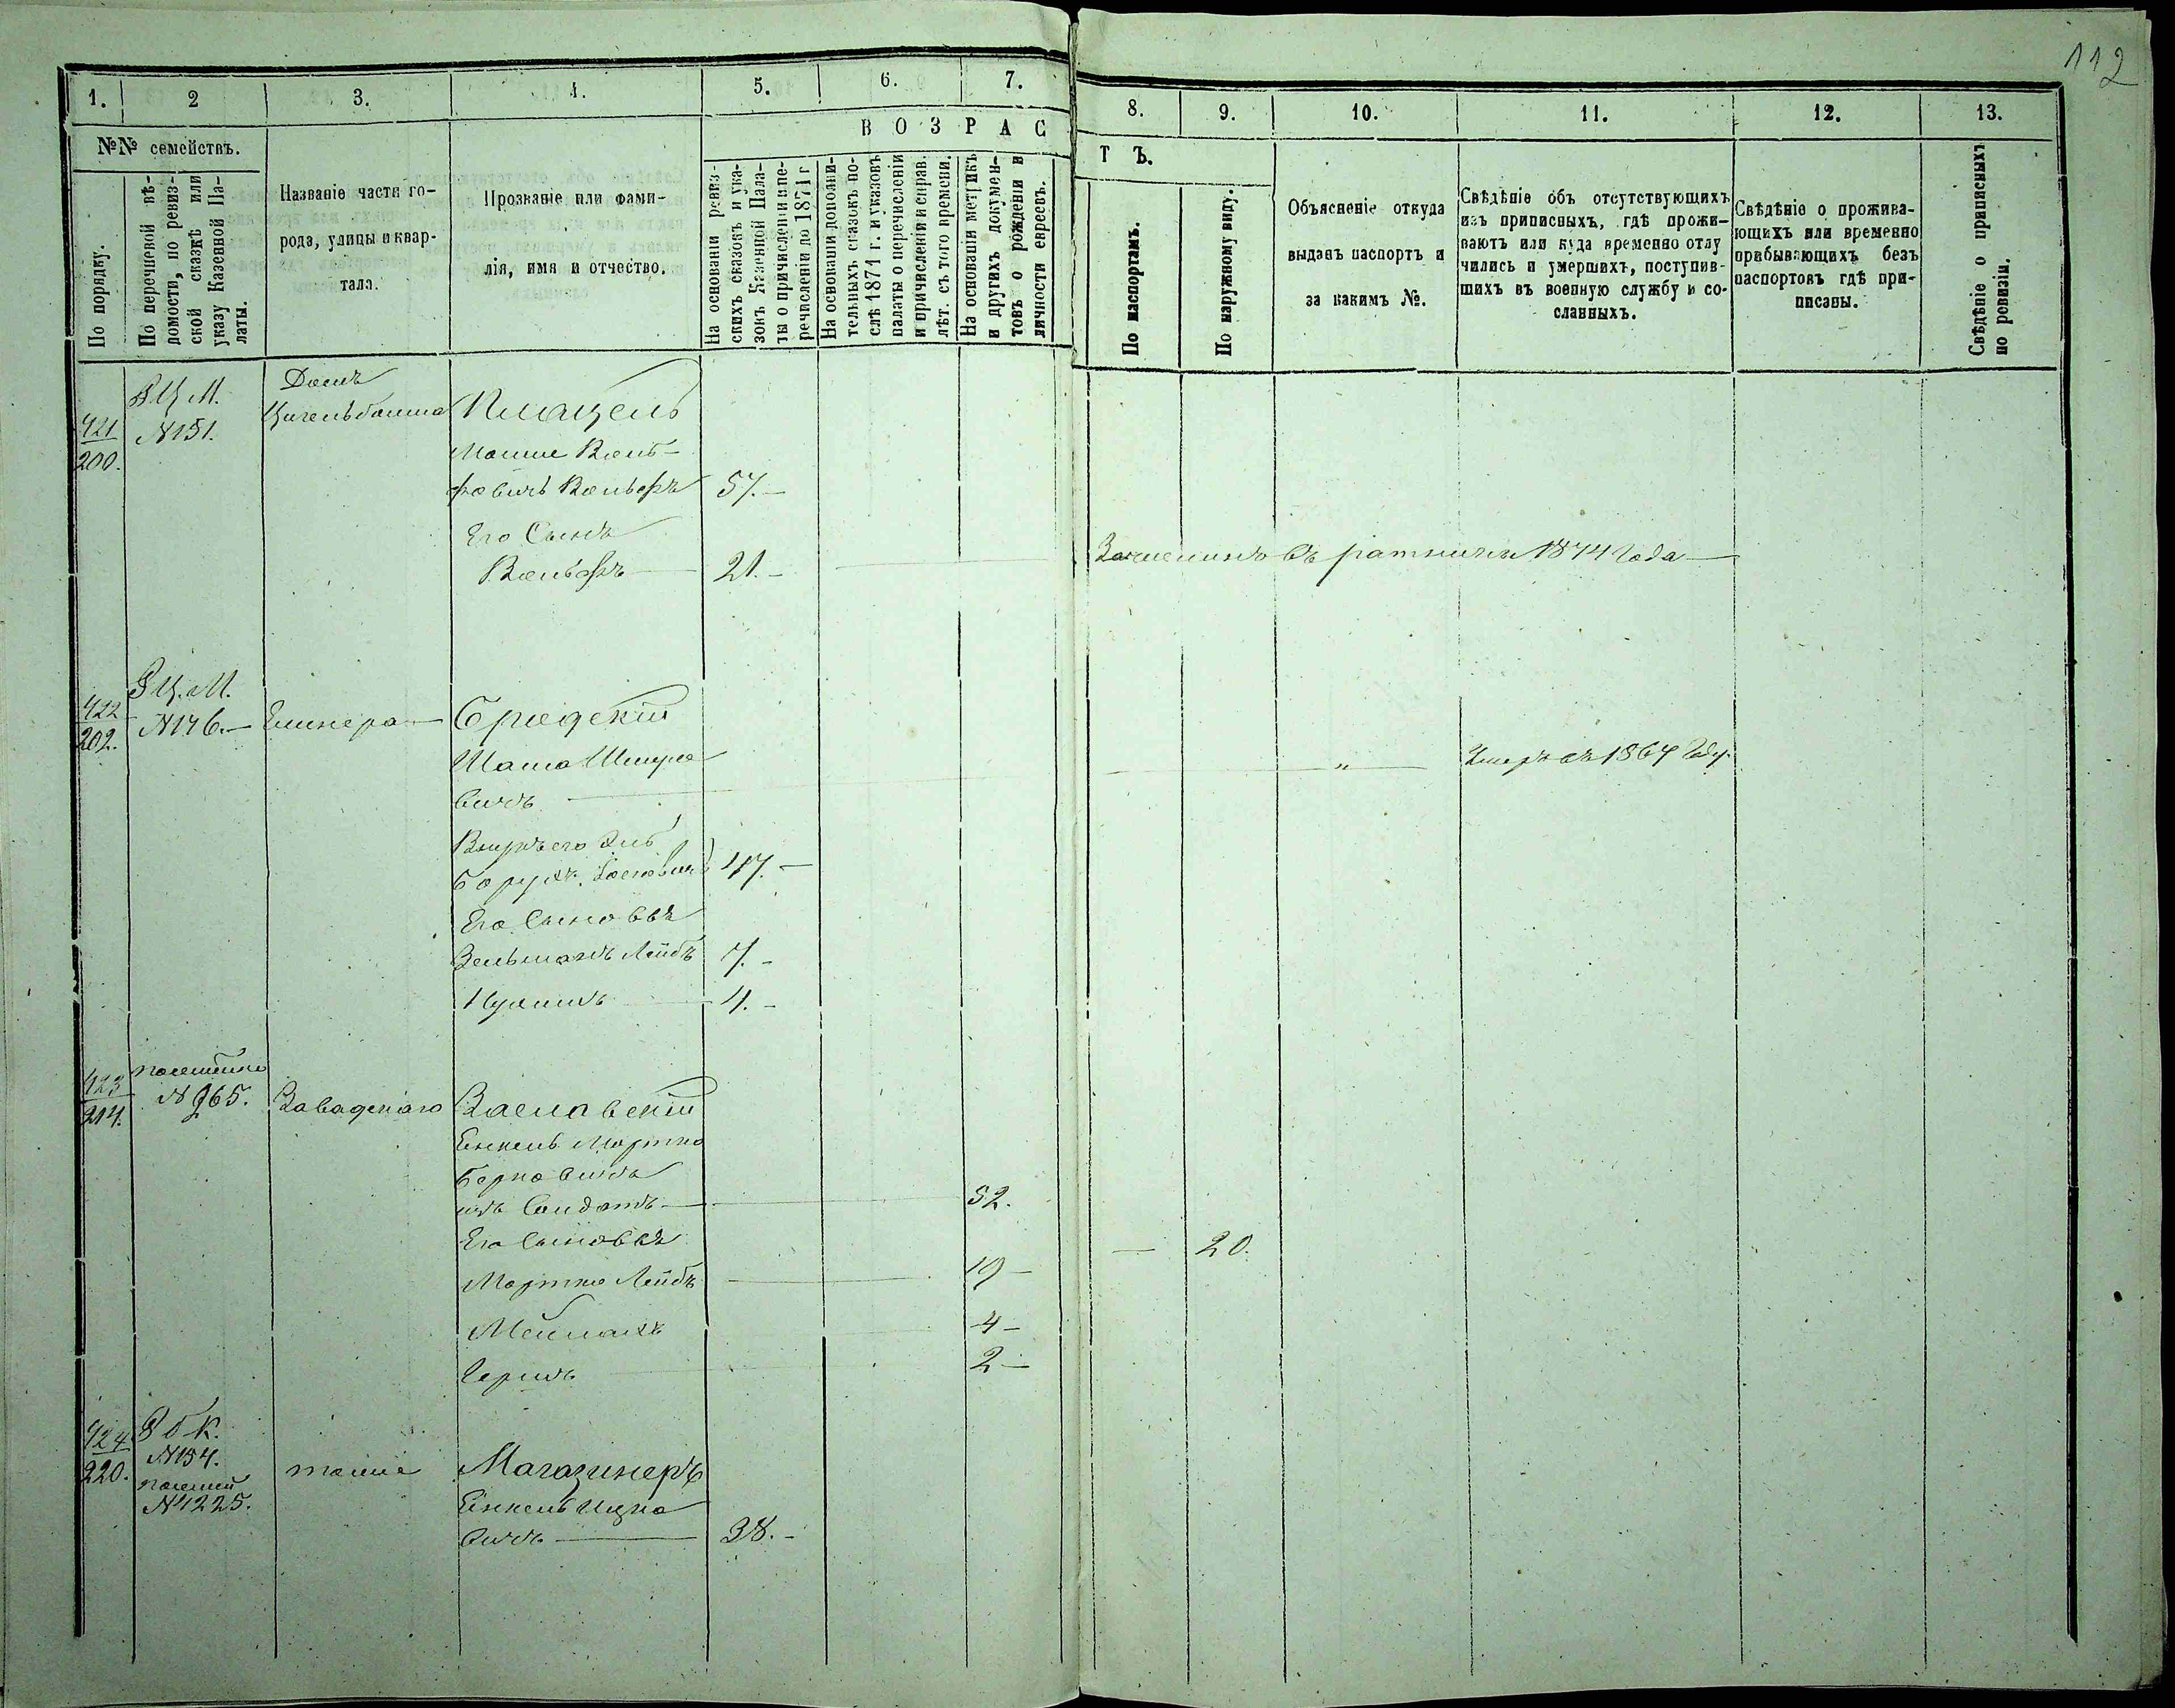 112
1.
2
3.
4.
5.
6.
7.
8.
9.
10.
11.
12.
13.
№№ семействъ.
По порядку.
По перечневой вѣ-
домости, по ревиз-
ской сказкѣ или
указу Казенной Па-
латы.
Названіе части го-
рода, улицы и квар-
тала.
Прозваніе или фами-
лія, имя и отчество.
ВОЗРАС
ТЪ.
На основаніи ревиз-
скихъ сказокъ и ука-
зокъ Казенной Пала-
ты о причисленіи и пе-
речисленіи до 1871 г
На основаніи дополни-
тельныхъ сказокъ по-
слѣ 1871 г. и указовъ
палаты о перечисленіи
и причисленіи и справ.
лѣт. съ того времени.
На основаніи метрикъ
и другихъ докумен-
товъ о рожденіи и
личности евреевъ.
По паспортамъ.
По наружному виду.
Объясненіе откуда
выданъ паспортъ и
за какимъ №.
Свѣдѣніе объ отсутствующихъ
изъ приписныхъ, гдѣ прожи-
ваютъ или куда временно отлу
чились и умершихъ, поступив-
шихъ въ военную службу и со-
сланныхъ.
Свѣдѣніе о прожива-
ющихъ или временно
пребывающихъ безъ
паспортовъ гдѣ при-
писаны.
Свѣдѣніе о приписныхъ
по ревизіи.
421
200.
№151.
Домъ
Мошко Воль-
фовичъ Вольфъ 57.-
Его Сынъ
Вольфъ 21.-
въ ратники 1874 Года
422
202.
№146.-
Бродскій
Шмуле
вичъ
"
Умеръ въ 1867 Году.
Внукъ его
Борухъ 47.-
Его Сыновья
Зельманъ Лейбъ 7.-
4.-
423
214.
№265.
Завадскаго
Заславскій
Енкель Мортко
Берковичъ
изъ Солдатъ 52.
Его Сыновья
Мортко Лейбъ 19- 20.
4-
Гершъ 2-
424
220.
№154.
№1225.
тоже
Магазинеръ
Енкель Ицко
вичъ 38.-